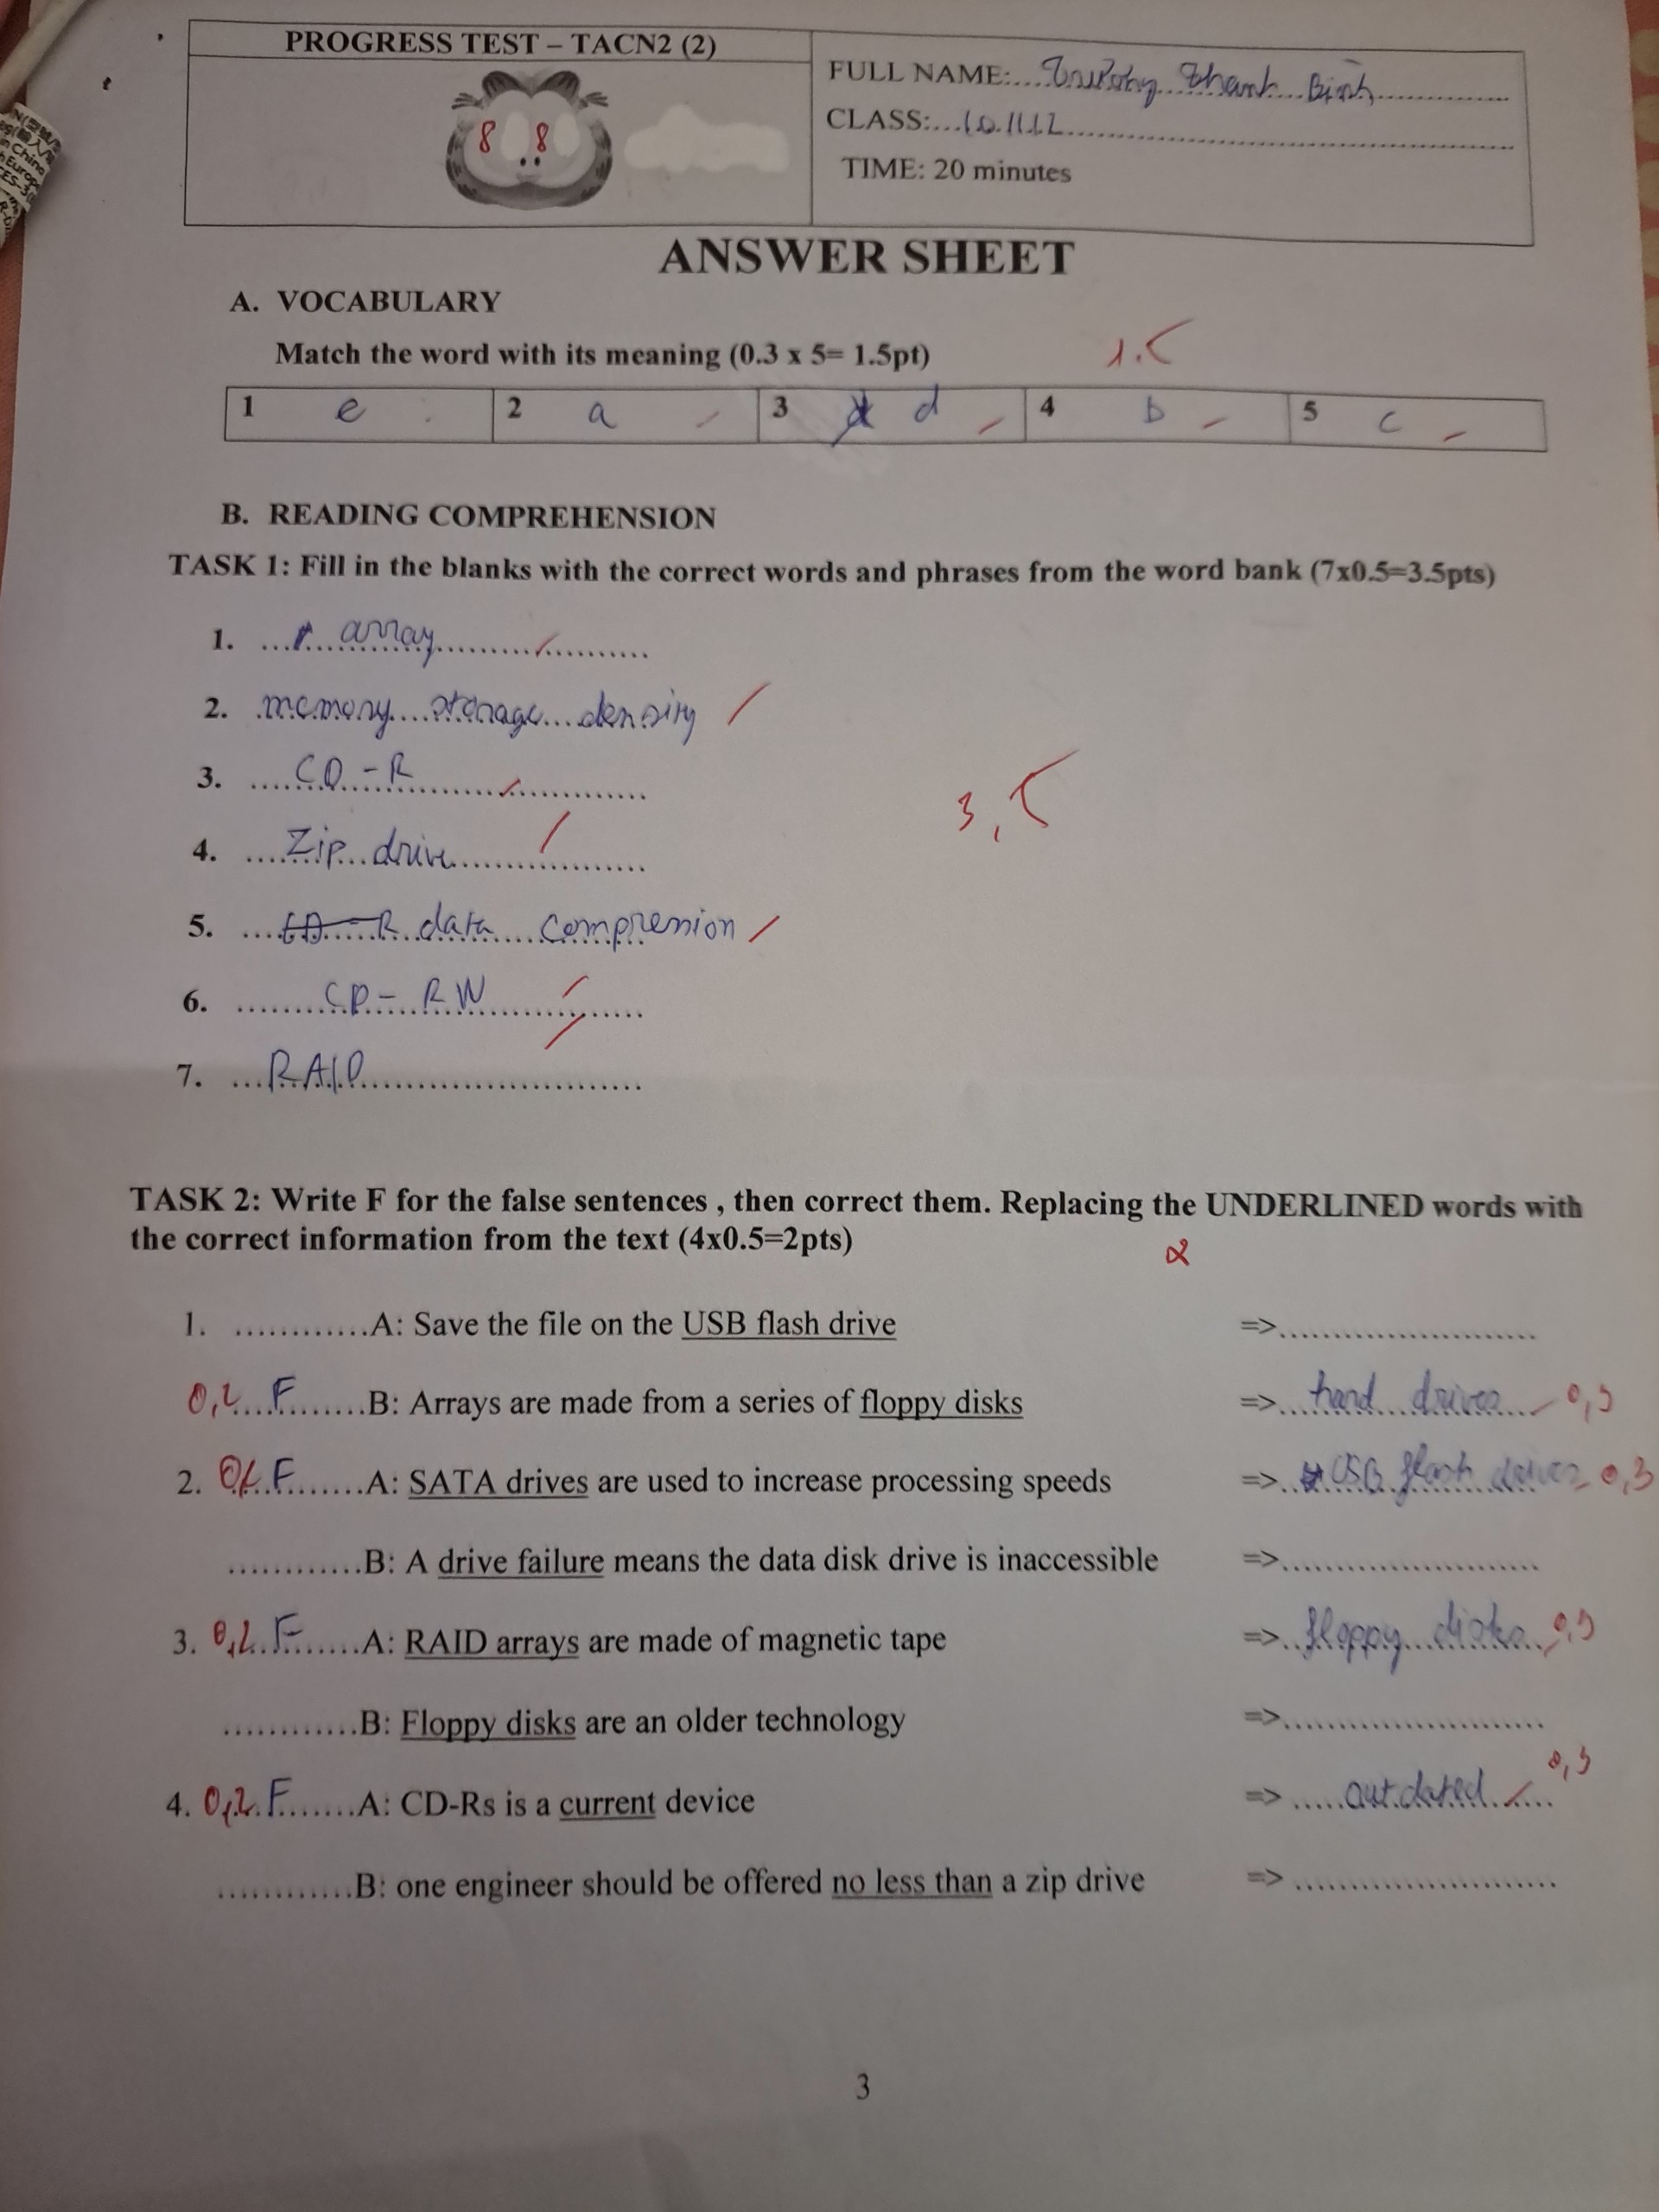 PROGRESS TEST – TACN2 (2)
8 8
FULL NAME:... Thanh Bình
CLASS:...10.1112
TIME: 20 minutes
ANSWER SHEET
A. VOCABULARY
Match the word with its meaning (0.3 x 5= 1.5pt) 1.5
1 e 2 a 3 d 4 b 5 c
B. READING COMPREHENSION
TASK 1: Fill in the blanks with the correct words and phrases from the word bank (7x0.5=3.5pts)
1. array
2. memory storage density
3. CD-R
3,5
4. Zip drive
5. CD-R data compression
6. CD-RW
7. RAID
TASK 2: Write F for the false sentences , then correct them. Replacing the UNDERLINED words with
the correct information from the text (4x0.5=2pts)
2
1. ............A: Save the file on the USB flash drive =>........................
0,2 F........B: Arrays are made from a series of floppy disks => hard drives 0,3
2. F.......A: SATA drives are used to increase processing speeds => USB flash drives 0,3
............B: A drive failure means the data disk drive is inaccessible =>........................
3. 0,2 F.......A: RAID arrays are made of magnetic tape => floppy disks 0,3
............B: Floppy disks are an older technology =>........................
4. 0,2 F.......A: CD-Rs is a current device => outdated 0,3
............B: one engineer should be offered no less than a zip drive => ........................
3